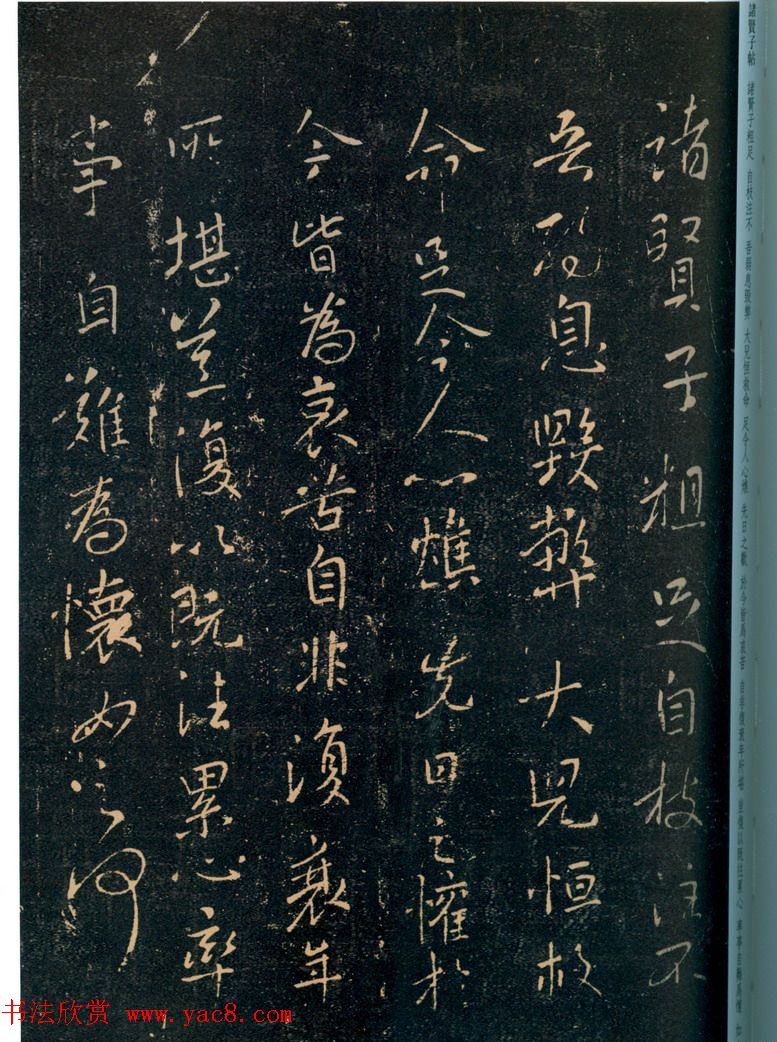 諸賢子粗足自枝注不
吾弱息毀弊大兄恒救
命足令人心燋先日之懽於
今皆為哀苦自非復衰年
所堪並復以既往累心率
事自難為懷如何
諸賢子帖 諸賢子粗足 自枝注不 吾弱息毀弊 大兄恒救命 足令人心燋 先日之歡 於今皆為哀苦 自非復衰年所堪 並復以既往累心 率事自難為懷 如
书法欣赏 www.yac8.com